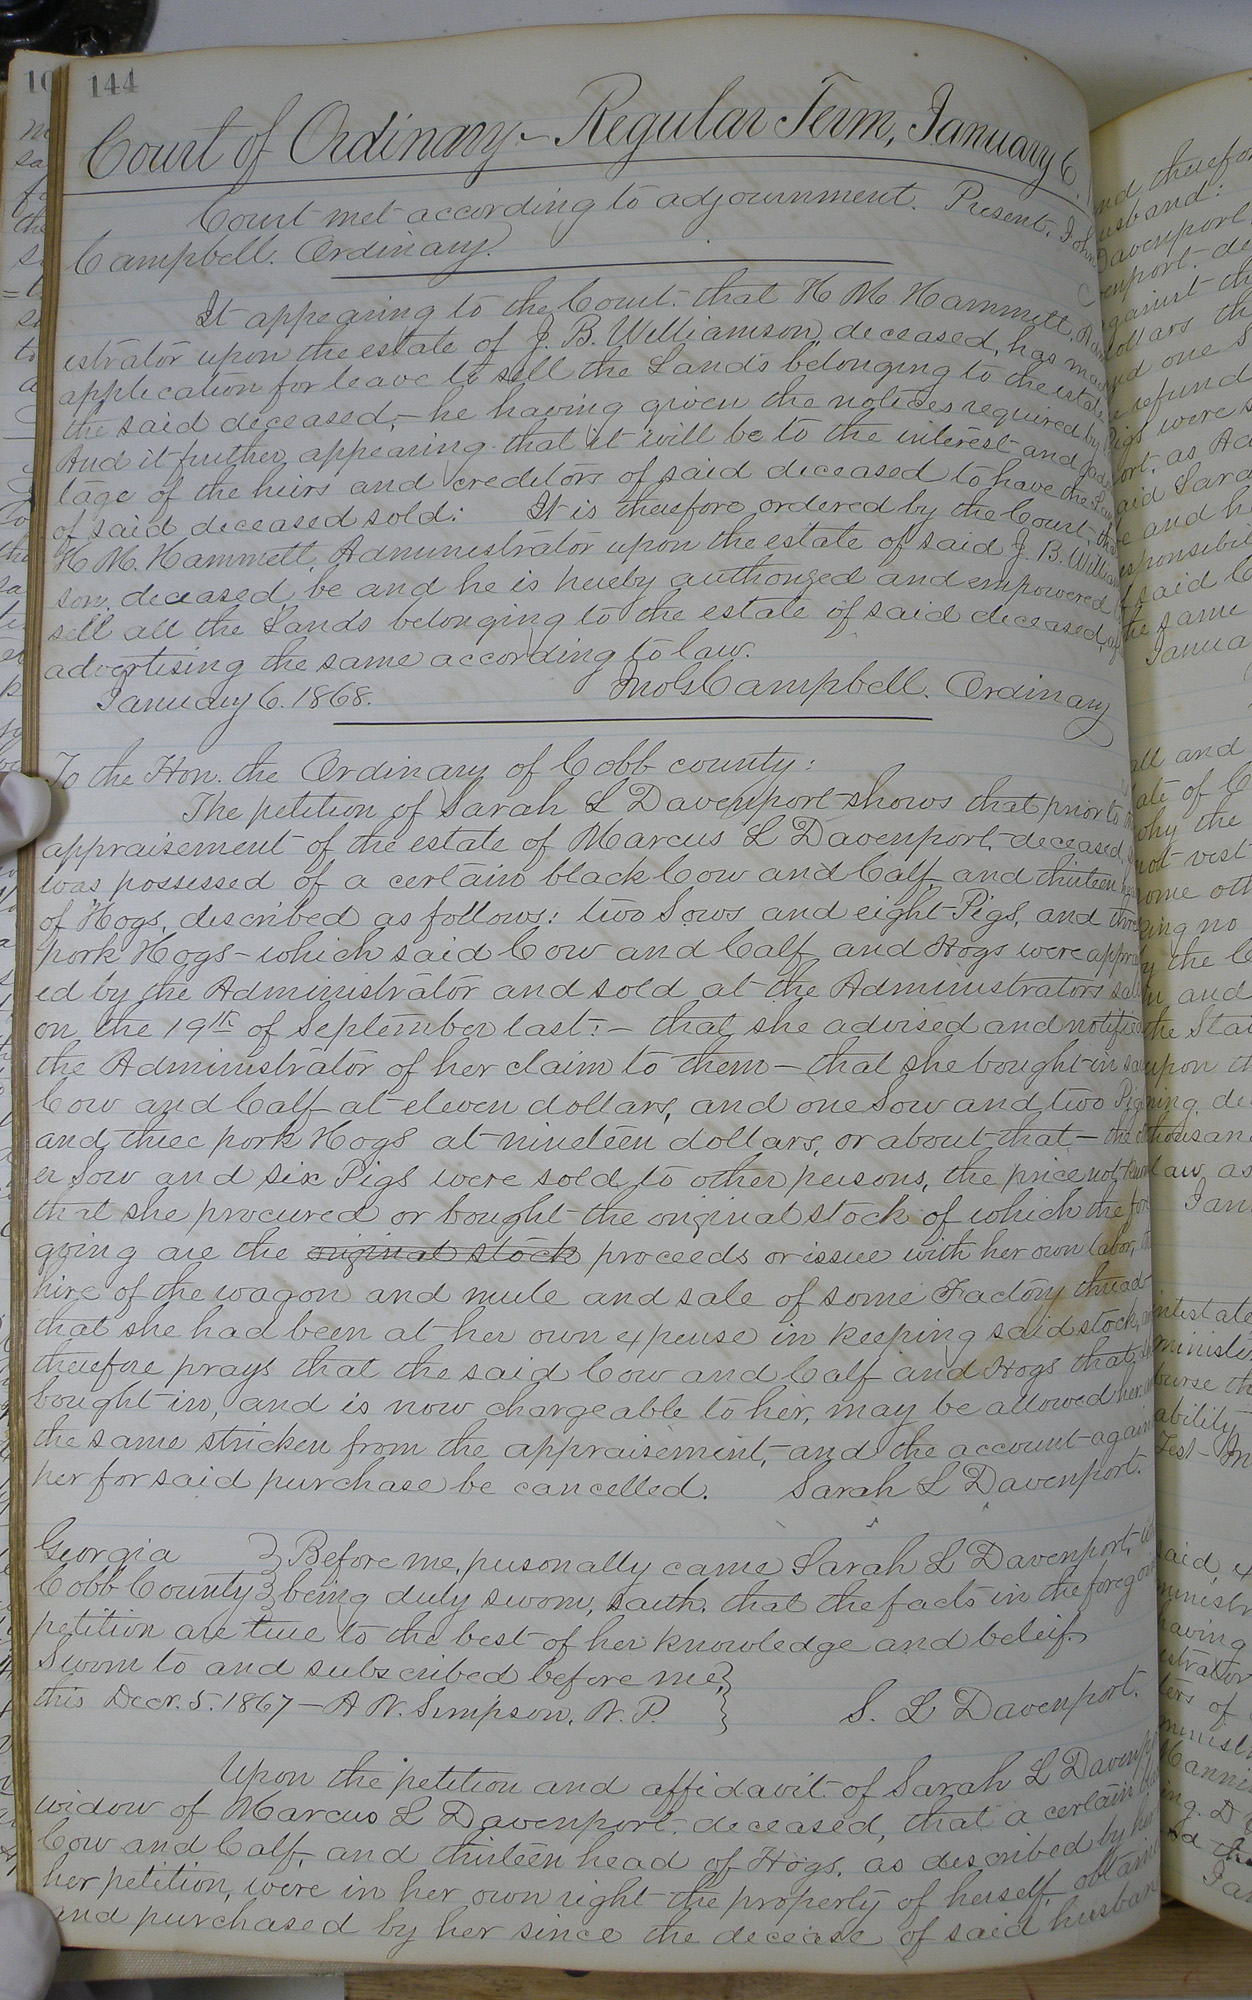 144
Court of Ordinary - Regular Term, January 6.
Court met according to adjournment. Present, John
Campbell. Ordinary.
It appearing to the Court that H M. Hammett,
istrator upon the estate of J. B. Williamson, deceased, has made
application for leave to sell the Lands belonging to the estate
the said deceased, - he having given the notices required by
And it further appearing that it will be to the interest and
tage of the heirs and creditors of said deceased to have the
of said deceased sold: It is therefore ordered by the Court, that
H. M. Hammett, Administrator upon the estate of said J. B. William
son, deceased, be and he is hereby authorized and empowered
sell all the Lands belonging to the estate of said deceased,
advertising the same according to law.
January 6. 1868. Jno G Campbell. Ordinary
To the Hon. the Ordinary of Cobb county:
The petition of Sarah L Davenport shows that prior to
appraisement of the estate of Marcus L Davenport, deceased,
was possessed of a certain black Cow and Calf, and thirteen
of Hogs, described as follows: two Sows and eight Pigs, and three
pork Hogs - which said Cow and Calf and Hogs were apprais
ed by the Administrator and sold at the Administrators sale
on the 19th of September last: - that she advised and notified
the Administrator of her claim to them - that she bought in said
Cow and Calf at eleven dollars, and one Sow and two Pigs
and three pork Hogs at nineteen dollars, or about that - the oth
er Sow and six Pigs were sold to other persons, the price not known
that she procured or bought the original stock of which the fore
going are the original stock proceeds or issue with her own labor, the
hire of the wagon and mule and sale of some Factory thread
that she had been at her own expense in keeping said stock, and
therefore prays that the said Cow and Calf and Hogs that she
bought in, and is now chargeable to her, may be allowed her, and
the same stricken from the appraisement, and the account against
her for said purchase be cancelled. Sarah L Davenport.
Georgia } Before me, personally came Sarah L Davenport,
Cobb County } being duly sworn, saith, that the facts in the foregoing
petition are true to the best of her knowledge and beleif.
Sworn to and subscribed before me, }
this Decr. 5. 1867 - A N. Simpson, N. P. } S. L Davenport.
Upon the petition and affidavit of Sarah L Davenport
widow of Marcus L Davenport deceased, that a certain black
Cow and Calf, and thirteen head of Hogs, as described by her
her petition, were in her own right the property of herself, obtained
and purchased by her since the decease of said husband